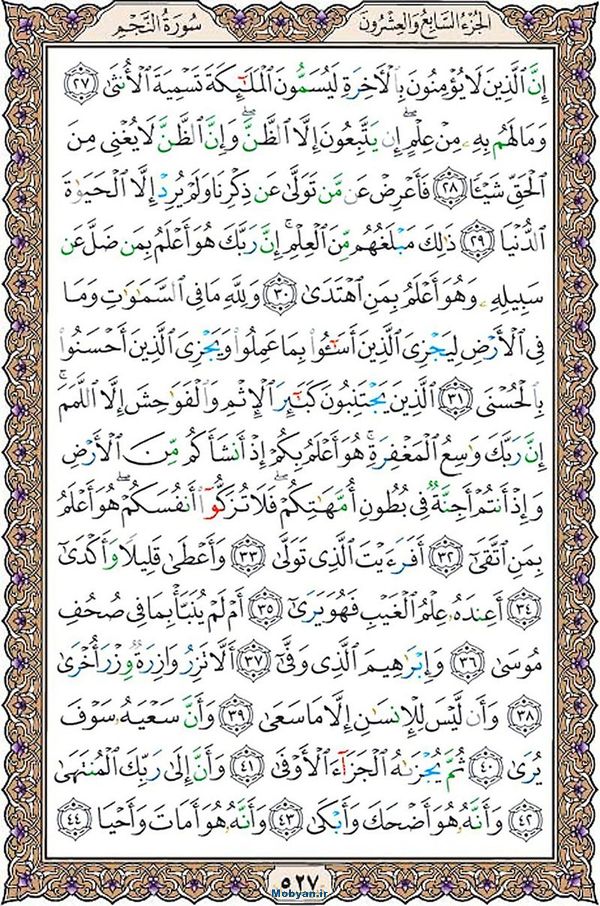 الجزء السابع والعشرون
سورة النجم
إِنَّ ٱلَّذِينَ لَا يُؤْمِنُونَ بِٱلْـَٔاخِرَةِ لَيُسَمُّونَ ٱلْمَلَـٰٓئِكَةَ تَسْمِيَةَ ٱلْأُنثَىٰ ﴿٢٧﴾
وَمَا لَهُم بِهِۦ مِنْ عِلْمٍ ۖ إِن يَتَّبِعُونَ إِلَّا ٱلظَّنَّ ۖ وَإِنَّ ٱلظَّنَّ لَا يُغْنِى مِنَ
ٱلْحَقِّ شَيْـًٔا ﴿٢٨﴾ فَأَعْرِضْ عَن مَّن تَوَلَّىٰ عَن ذِكْرِنَا وَلَمْ يُرِدْ إِلَّا ٱلْحَيَوٰةَ
ٱلدُّنْيَا ﴿٢٩﴾ ذَٰلِكَ مَبْلَغُهُم مِّنَ ٱلْعِلْمِ ۚ إِنَّ رَبَّكَ هُوَ أَعْلَمُ بِمَن ضَلَّ عَن
سَبِيلِهِۦ وَهُوَ أَعْلَمُ بِمَنِ ٱهْتَدَىٰ ﴿٣٠﴾ وَلِلَّهِ مَا فِى ٱلسَّمَـٰوَٰتِ وَمَا
فِى ٱلْأَرْضِ لِيَجْزِىَ ٱلَّذِينَ أَسَـٰٓـُٔوا۟ بِمَا عَمِلُوا۟ وَيَجْزِىَ ٱلَّذِينَ أَحْسَنُوا۟
بِٱلْحُسْنَى ﴿٣١﴾ ٱلَّذِينَ يَجْتَنِبُونَ كَبَـٰٓئِرَ ٱلْإِثْمِ وَٱلْفَوَٰحِشَ إِلَّا ٱللَّمَمَ ۚ
إِنَّ رَبَّكَ وَٰسِعُ ٱلْمَغْفِرَةِ ۚ هُوَ أَعْلَمُ بِكُمْ إِذْ أَنشَأَكُم مِّنَ ٱلْأَرْضِ
وَإِذْ أَنتُمْ أَجِنَّةٌ فِى بُطُونِ أُمَّهَـٰتِكُمْ ۖ فَلَا تُزَكُّوٓا۟ أَنفُسَكُمْ ۖ هُوَ أَعْلَمُ
بِمَنِ ٱتَّقَىٰٓ ﴿٣٢﴾ أَفَرَءَيْتَ ٱلَّذِى تَوَلَّىٰ ﴿٣٣﴾ وَأَعْطَىٰ قَلِيلًا وَأَكْدَىٰٓ
﴿٣٤﴾ أَعِندَهُۥ عِلْمُ ٱلْغَيْبِ فَهُوَ يَرَىٰٓ ﴿٣٥﴾ أَمْ لَمْ يُنَبَّأْ بِمَا فِى صُحُفِ
مُوسَىٰ ﴿٣٦﴾ وَإِبْرَٰهِيمَ ٱلَّذِى وَفَّىٰٓ ﴿٣٧﴾ أَلَّا تَزِرُ وَازِرَةٌ وِزْرَ أُخْرَىٰ
﴿٣٨﴾ وَأَن لَّيْسَ لِلْإِنسَـٰنِ إِلَّا مَا سَعَىٰ ﴿٣٩﴾ وَأَنَّ سَعْيَهُۥ سَوْفَ
يُرَىٰ ﴿٤٠﴾ ثُمَّ يُجْزَىٰهُ ٱلْجَزَآءَ ٱلْأَوْفَىٰ ﴿٤١﴾ وَأَنَّ إِلَىٰ رَبِّكَ ٱلْمُنتَهَىٰ
﴿٤٢﴾ وَأَنَّهُۥ هُوَ أَضْحَكَ وَأَبْكَىٰ ﴿٤٣﴾ وَأَنَّهُۥ هُوَ أَمَاتَ وَأَحْيَا ﴿٤٤﴾
٥٢٧
Mobyan.ir